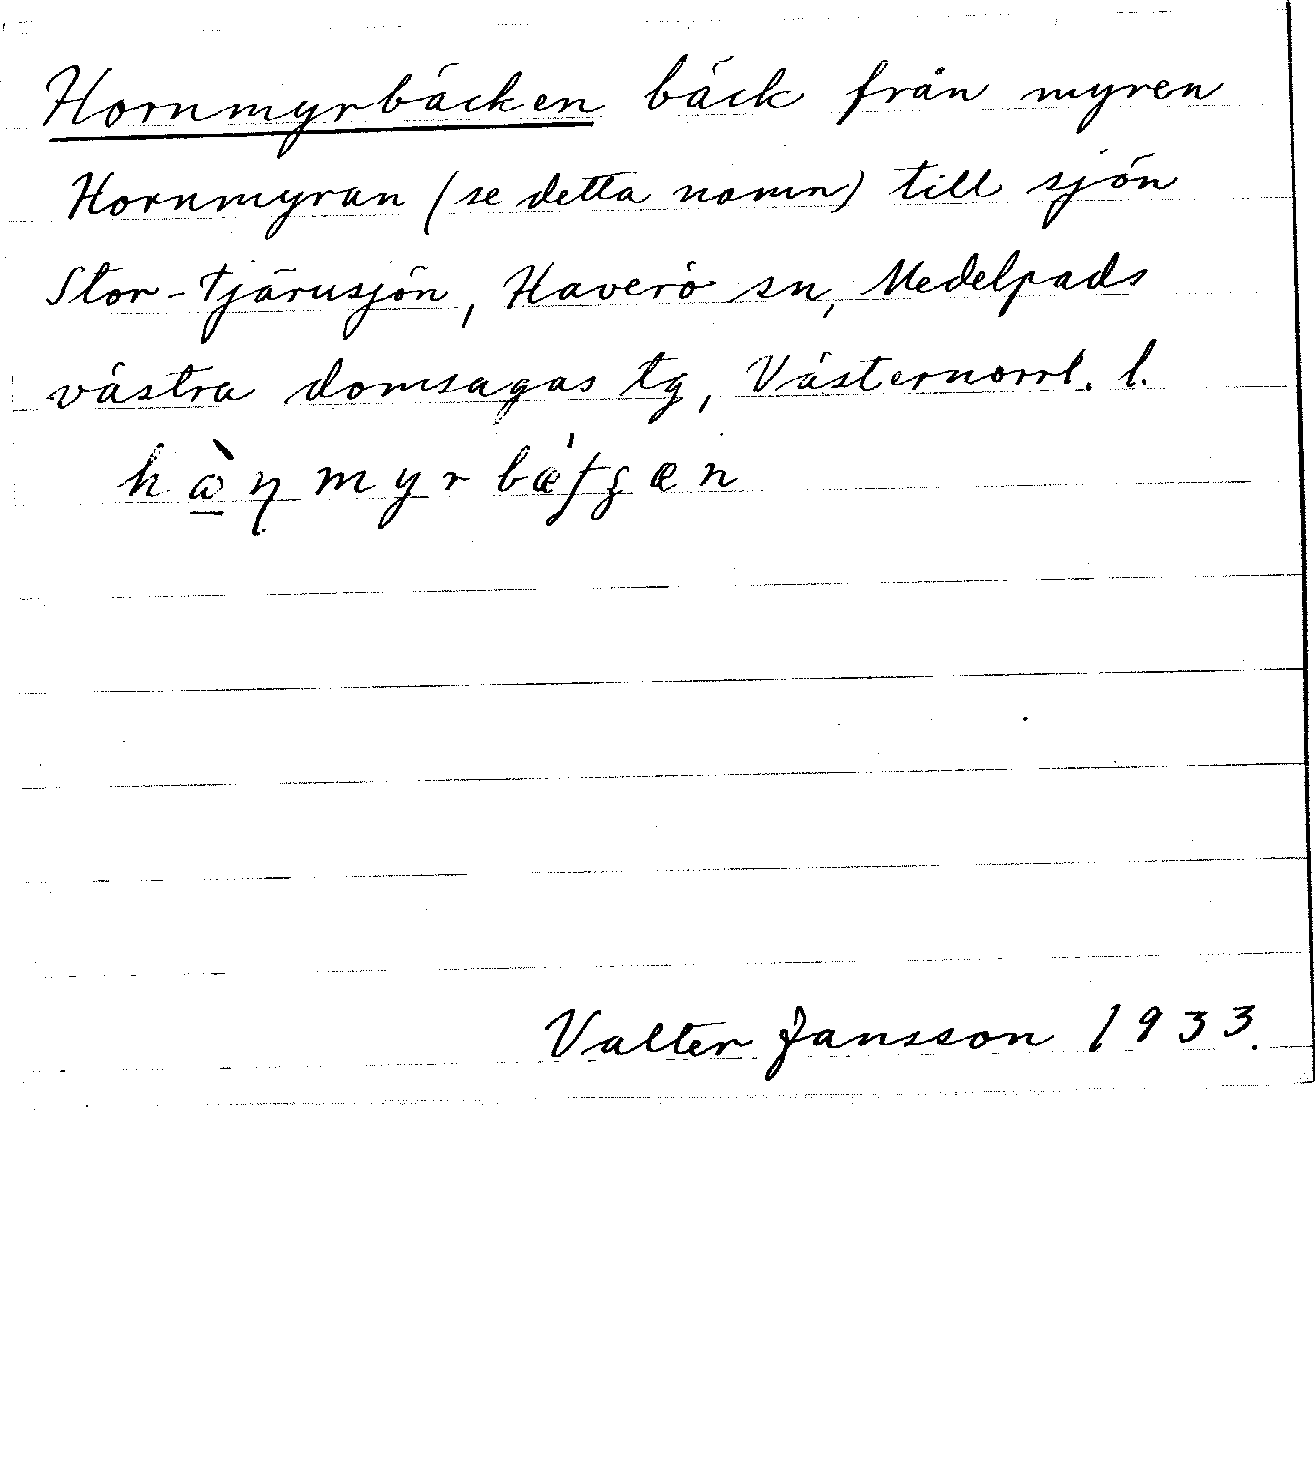 Hornmyrbäcken bäck från myren
Hornmyran (se detta namn) till sjön
Stor-Tjärusjön, Haverö sn, Medelpads
västra domsagas tg, Västernorrl. l.
Valter Jansson 1933.